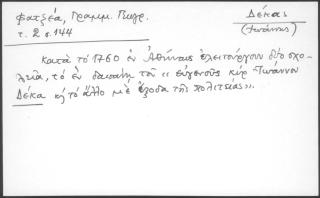 Φατζέα, Γραμμ. Γεωγρ.
τ. 2 σ. 144
Δέκας
(Ἰωάννης)
κατὰ τὸ 1760 ἐν Ἀθήναις ἐλειτούργουν δύο σχο-
λεῖα, τὸ ἓν δαπάνῃ τοῦ «εὐγενοῦς κὺρ Ἰωάννου
Δέκα κ τὸ ἄλλο μὲ ἔξοδα τῆς πολιτείας».